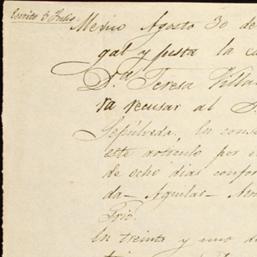 Escrito 6 Julio
Mexico Agosto 30 de
gal y justa la ca
D.ª Teresa Villa
ra recusar al S
Sepúlveda, en conse
este articulo por e
de ocho dias confor
da = Aguilar = Am
Frio.
En treinta y uno d